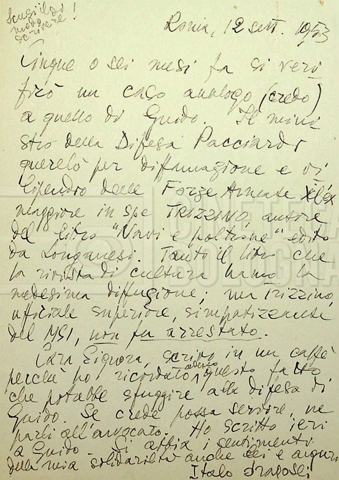 Scusi il modo
di scrivere!
Roma, 12 sett. 1953
Cinque o sei mesi fa si veri
ficò un caso analogo (credo)
a quello di Guido. Il mini
stro della Difesa Pacciardi
querelò per diffamazione e vi
lipendio delle Forze Armate l'ex
maggiore in spe TRIZZINO, autore
del libro "Navi e poltrone" edito
da Longanesi. Tanto il libro che
la rivista di cultura hanno la
medesima diffusione; ma Trizzino,
ufficiale superiore, simpatizzante
del MSI, non fu arrestato.
Cara Signora, scrivo in un caffè
perché ho ricordato adesso questo fatto
che potrebbe sfuggire alla difesa di
Guido. Se crede possa servire, ne
parli all'avvocato. Ho scritto ieri
a Guido. Si abbia i sentimenti
della mia solidarietà anche lei e auguri
Italo Dragosei